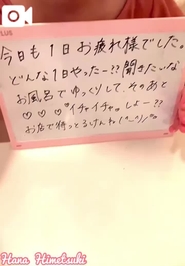 PLUS
今日も1日お疲れ様でした。
どんな1日やったー??聞きたいな
お風呂でゆっくりして、そのあと
♡♡♡イチャイチャ♡しよー??
お店で待っとるけんね(^^)/
Hana Himetsuki